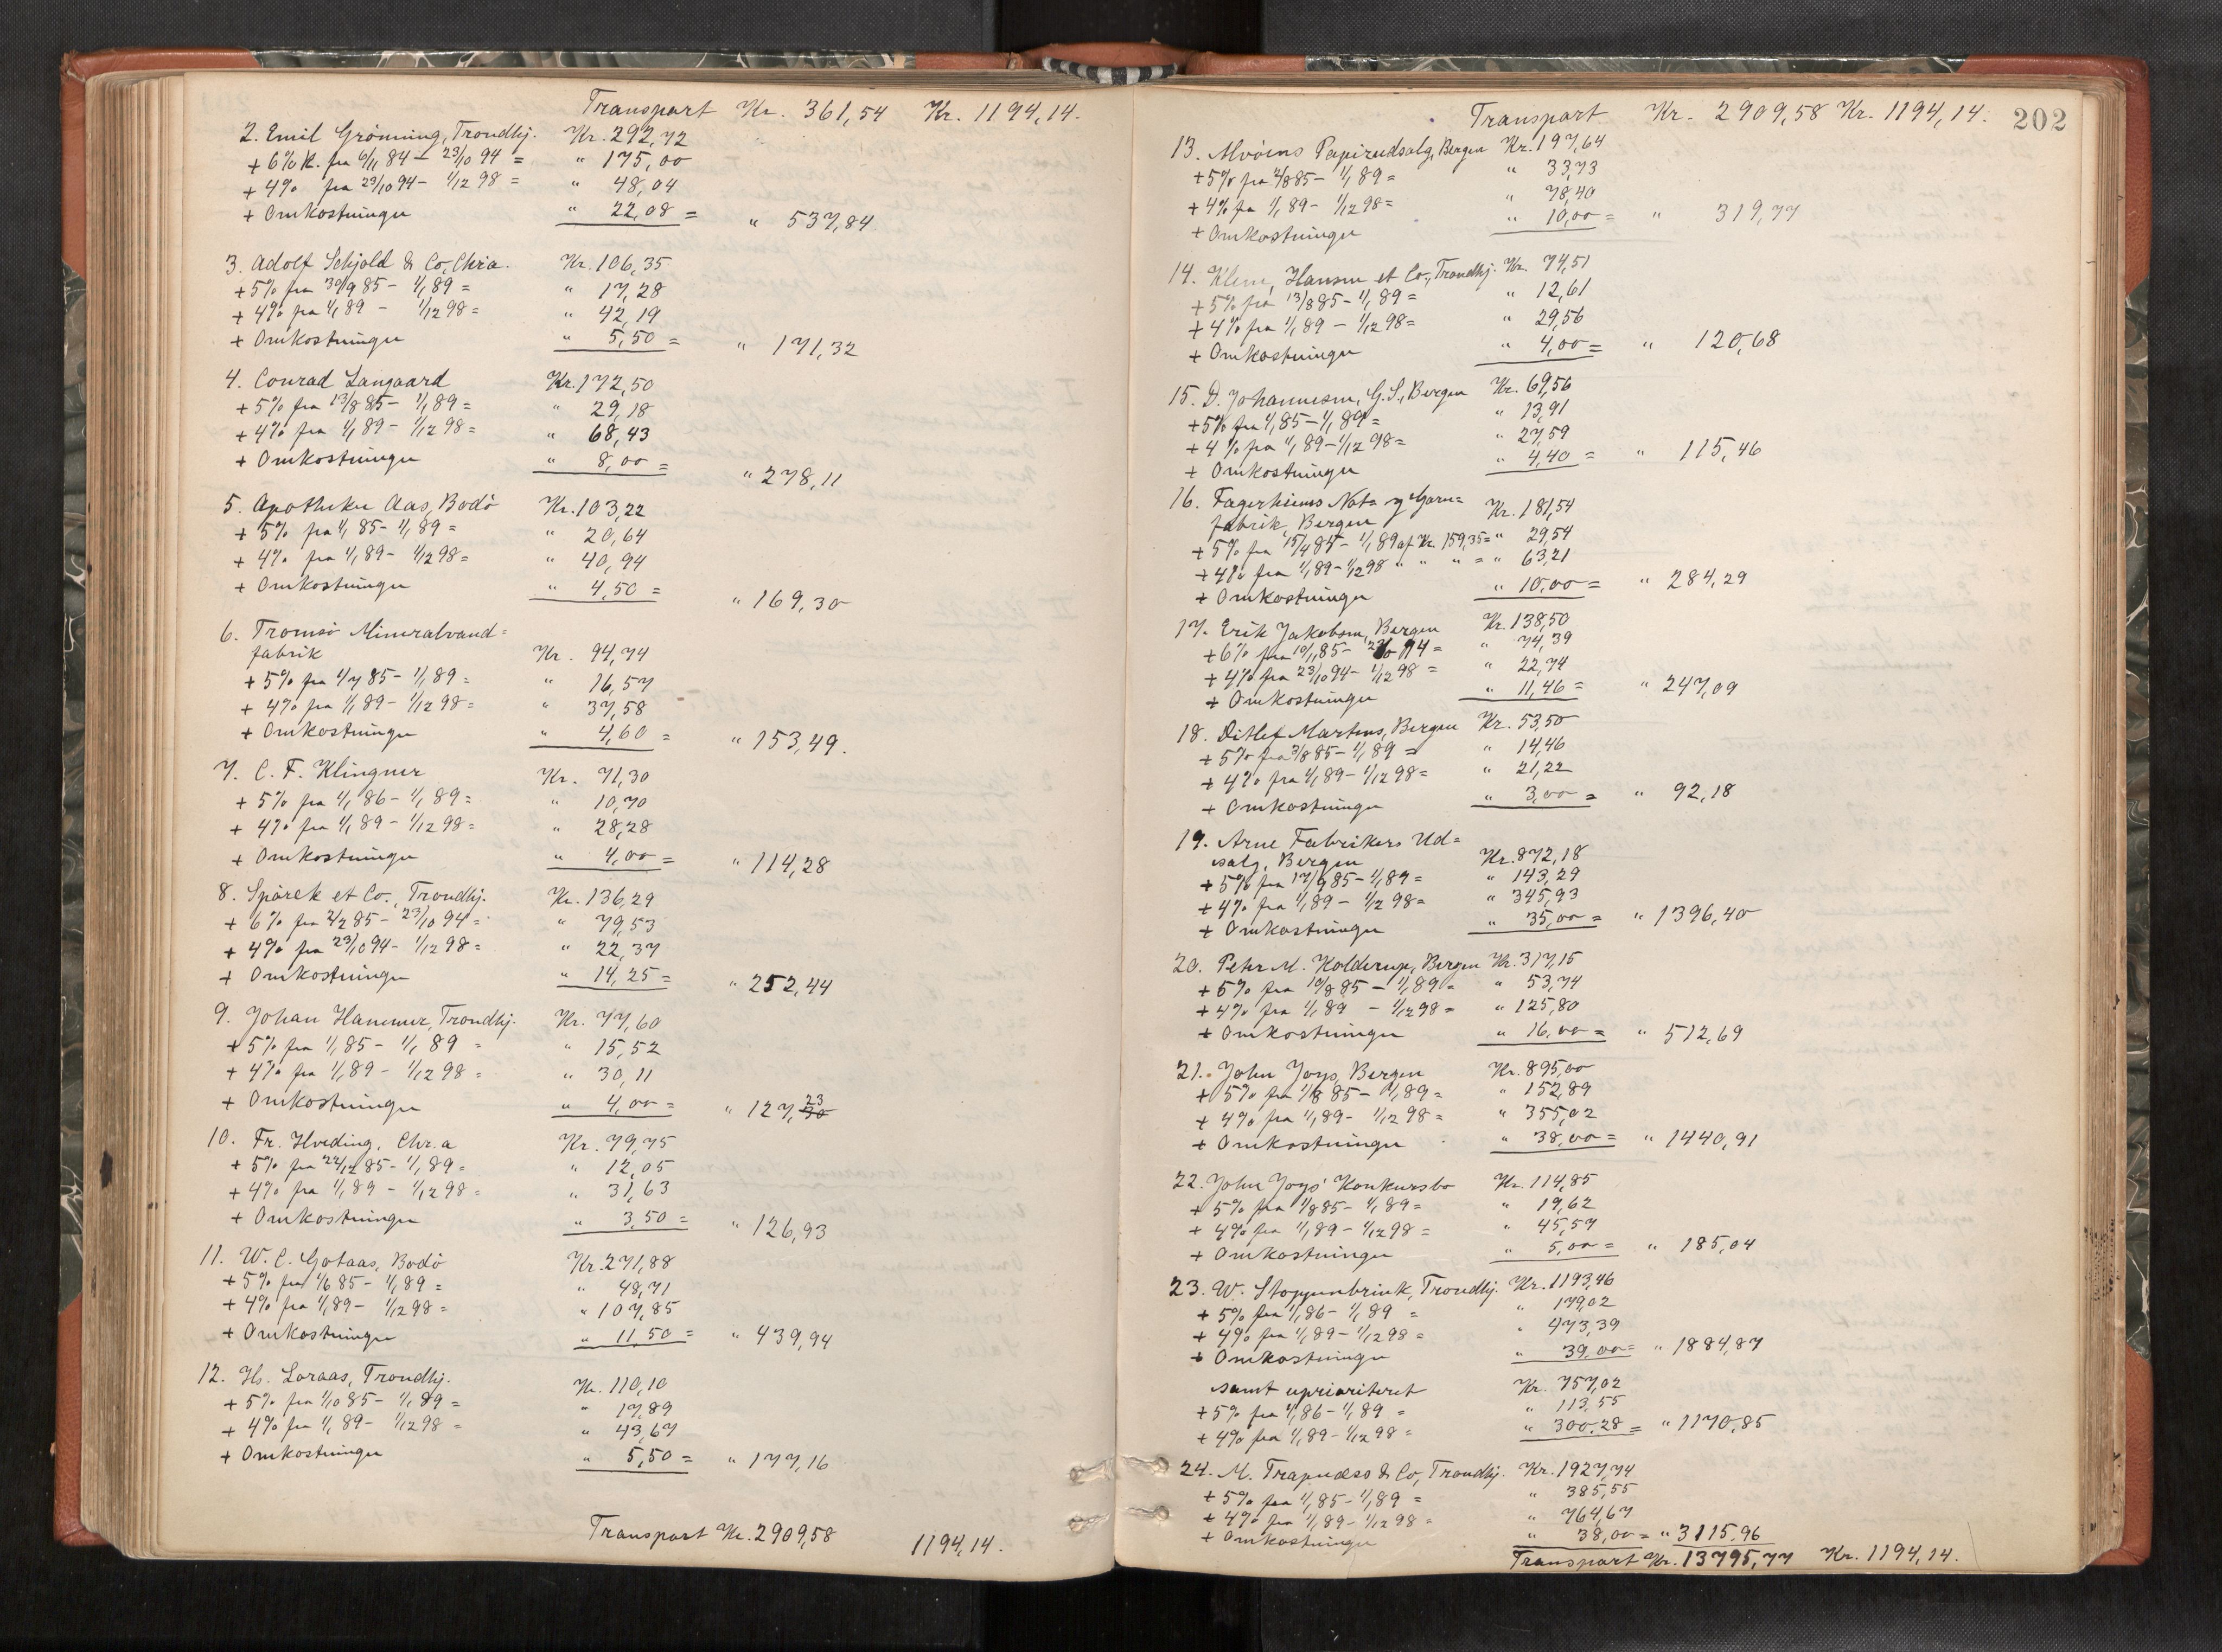 Transport Kr. 361,54 Kr. 1194,14.
2. Emil Grönning, Trondhj. Kr. 292,72
+ 6% R. fra 6/11 84 – 23/10 94 = " 175,00
+ 4% fra 23/10 94 – 1/12 98 = " 48,04
+ Omkostninger " 22,08 = " 537,84
3. Adolf Schjold & Co, Chria. Kr. 106,35
+ 5% fra 30/9 85 – 1/1 89 = " 17,28
+ 4% fra 1/1 89 – 1/12 98 = " 42,19
+ Omkostninger " 5,50 = " 171,32
4. Conrad Langaard Kr. 172,50
+ 5% fra 13/8 85 – 1/1 89 = " 29,18
+ 4% fra 1/1 89 – 1/12 98 = " 68,43
+ Omkostninger " 8,00 = " 278,11
5. Apotheker Aas, Bodö Kr. 103,22
+ 5% fra 1/1 85 – 1/1 89 = " 20,64
+ 4% fra 1/1 89 – 1/12 98 = " 40,94
+ Omkostninger " 4,50 = " 169,30
6. Tromsö Mineralvand=
fabrik Kr. 94,74
+ 5% fra 1/7 85 – 1/1 89 = " 16,57
+ 4% fra 1/1 89 – 1/12 98 = " 37,58
+ Omkostninger " 4,60 = " 153,49.
7. C. F. Klingner Kr. 71,30
+ 5% fra 1/1 86 – 1/1 89 = " 10,70
+ 4% fra 1/1 89 – 1/12 98 = " 28,28
+ Omkostninger " 4,00 = " 114,28
8. Spörck et Co., Trondhj. Kr. 136,29
+ 6% fra 2/2 85 – 23/10 94 = " 79,53
+ 4% fra 23/10 94 – 1/12 98 = " 22,37
+ Omkostninger " 14,25 = " 252,44
9. Johan Hammer, Trondhj. Kr. 77,60
+ 5% fra 1/1 85 – 1/1 89 = " 15,52
+ 4% fra 1/1 89 – 1/12 98 = " 30,11
+ Omkostninger " 4,00 = " 127,23
10. Fr. Hveding, Chr.a Kr. 79,75
+ 5% fra 22/12 85 – 1/1 89 = " 12,05
+ 4% fra 1/1 89 – 1/12 98 = " 31,63
+ Omkostninger " 3,50 = " 126,93
11. W. C. Gotaas, Bodö Kr. 271,88
+ 5% fra 1/6 85 – 1/1 89 = " 48,71
+ 4% fra 1/1 89 – 1/12 98 = " 107,85
+ Omkostninger " 11,50 = " 439,94
12. H. Loraas, Trondhj. Kr. 110,10
+ 5% fra 1/10 85 – 1/1 89 = " 17,89
+ 4% fra 1/1 89 – 1/12 98 = " 43,67
+ Omkostninger " 5,50 = " 177,16
Transport Kr. 2909,58 1194,14.
Transport Kr. 2909,58 Kr. 1194,14. 202
13. Alvöens Papirudsalg, Bergen Kr. 197,64
+ 5% fra 2/8 85 – 1/1 89 = " 33,73
+ 4% fra 1/1 89 – 1/12 98 = " 78,40
+ Omkostninger " 10,00 = " 319,77
14. Klem, Hansen et Co., Trondhj. Kr. 74,51
+ 5% fra 13/8 85 – 1/1 89 = " 12,61
+ 4% fra 1/1 89 – 1/12 98 = " 29,56
+ Omkostninger " 4,00 = " 120,68
15. D. Johannesen, G.S., Bergen Kr. 69,56
+ 5% fra 1/1 85 – 1/1 89 = " 13,91
+ 4% fra 1/1 89 – 1/12 98 = " 27,59
+ Omkostninger " 4,40 = " 115,46
16. Fagerheims Nota og Garn=
fabrik, Bergen Kr. 181,54
+ 5% fra 15/4 85 – 1/1 89 af Kr. 159,35 = " 29,54
+ 4% fra 1/1 89 – 1/12 98 " " " = " 63,21
+ Omkostninger " 10,00 = " 284,29
17. Erik Jakobsen, Bergen Kr. 138,50
+ 6% fra 10/11 85 – 23/10 94 = " 74,39
+ 4% fra 23/10 94 – 1/12 98 = " 22,74
+ Omkostninger " 11,46 = " 247,09
18. Ditlef Martens, Bergen Kr. 53,50
+ 5% fra 3/8 85 – 1/1 89 = " 14,46
+ 4% fra 1/1 89 – 1/12 98 = " 21,22
+ Omkostninger " 3,00 = " 92,18
19. Arne Fabrikers Ud=
salg, Bergen Kr. 872,18
+ 5% fra 17/9 85 – 1/1 89 = " 143,29
+ 4% fra 1/1 89 – 1/12 98 = " 345,93
+ Omkostninger " 35,00 = " 1396,40
20. Peter M. Kolderup, Bergen Kr. 317,15
+ 5% fra 10/8 85 – 1/1 89 = " 53,74
+ 4% fra 1/1 89 – 1/12 98 = " 125,80
+ Omkostninger " 16,00 = " 512,69
21. John Joys, Bergen Kr. 895,00
+ 5% fra 1/8 85 – 1/1 89 = " 152,89
+ 4% fra 1/1 89 – 1/12 98 = " 355,02
+ Omkostninger " 38,00 = " 1440,91
22. John Joys' Konkursbo Kr. 114,85
+ 5% fra 1/8 85 – 1/1 89 = " 19,62
+ 4% fra 1/1 89 – 1/12 98 = " 45,57
+ Omkostninger " 5,00 = " 185,04
23. W. Stoppenbrink, Trondhj. Kr. 1193,46
+ 5% fra 1/1 86 – 1/1 89 = " 179,02
+ 4% fra 1/1 89 – 1/12 98 = " 473,39
+ Omkostninger " 39,00 = " 1884,87
samt uprioriteret Kr. 757,02
+ 5% fra 1/1 86 – 1/1 89 = " 113,55
+ 4% fra 1/1 89 – 1/12 98 = " 300,28 = " 1170,85
24. M. & Co, Trondhj. Kr. 1927,74
+ 5% fra 1/1 85 – 1/1 89 = " 385,55
+ 4% fra 1/1 89 – 1/12 98 = " 764,67
+ Omkostninger " 38,00 = " 3115,96
Transport Kr. 13795,77 Kr. 1194,14.